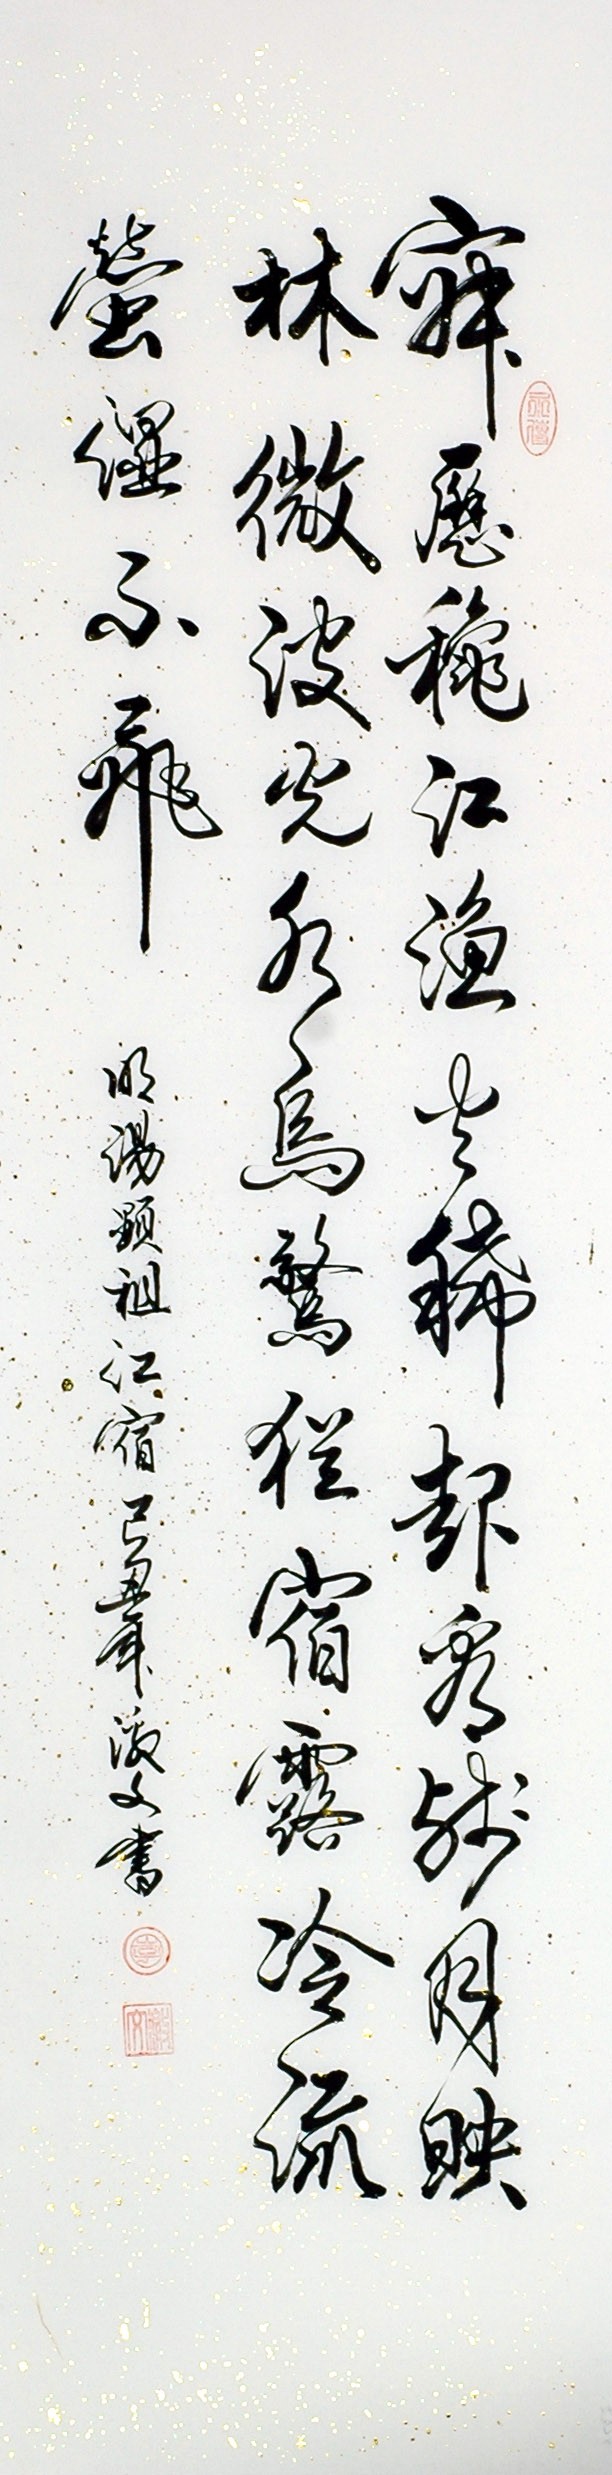 寂歷穐江漁火稀起看殘月映
林微波光水鳥驚猶宿露冷流
螢濕不飛
明湯顯祖江宿己丑年文書